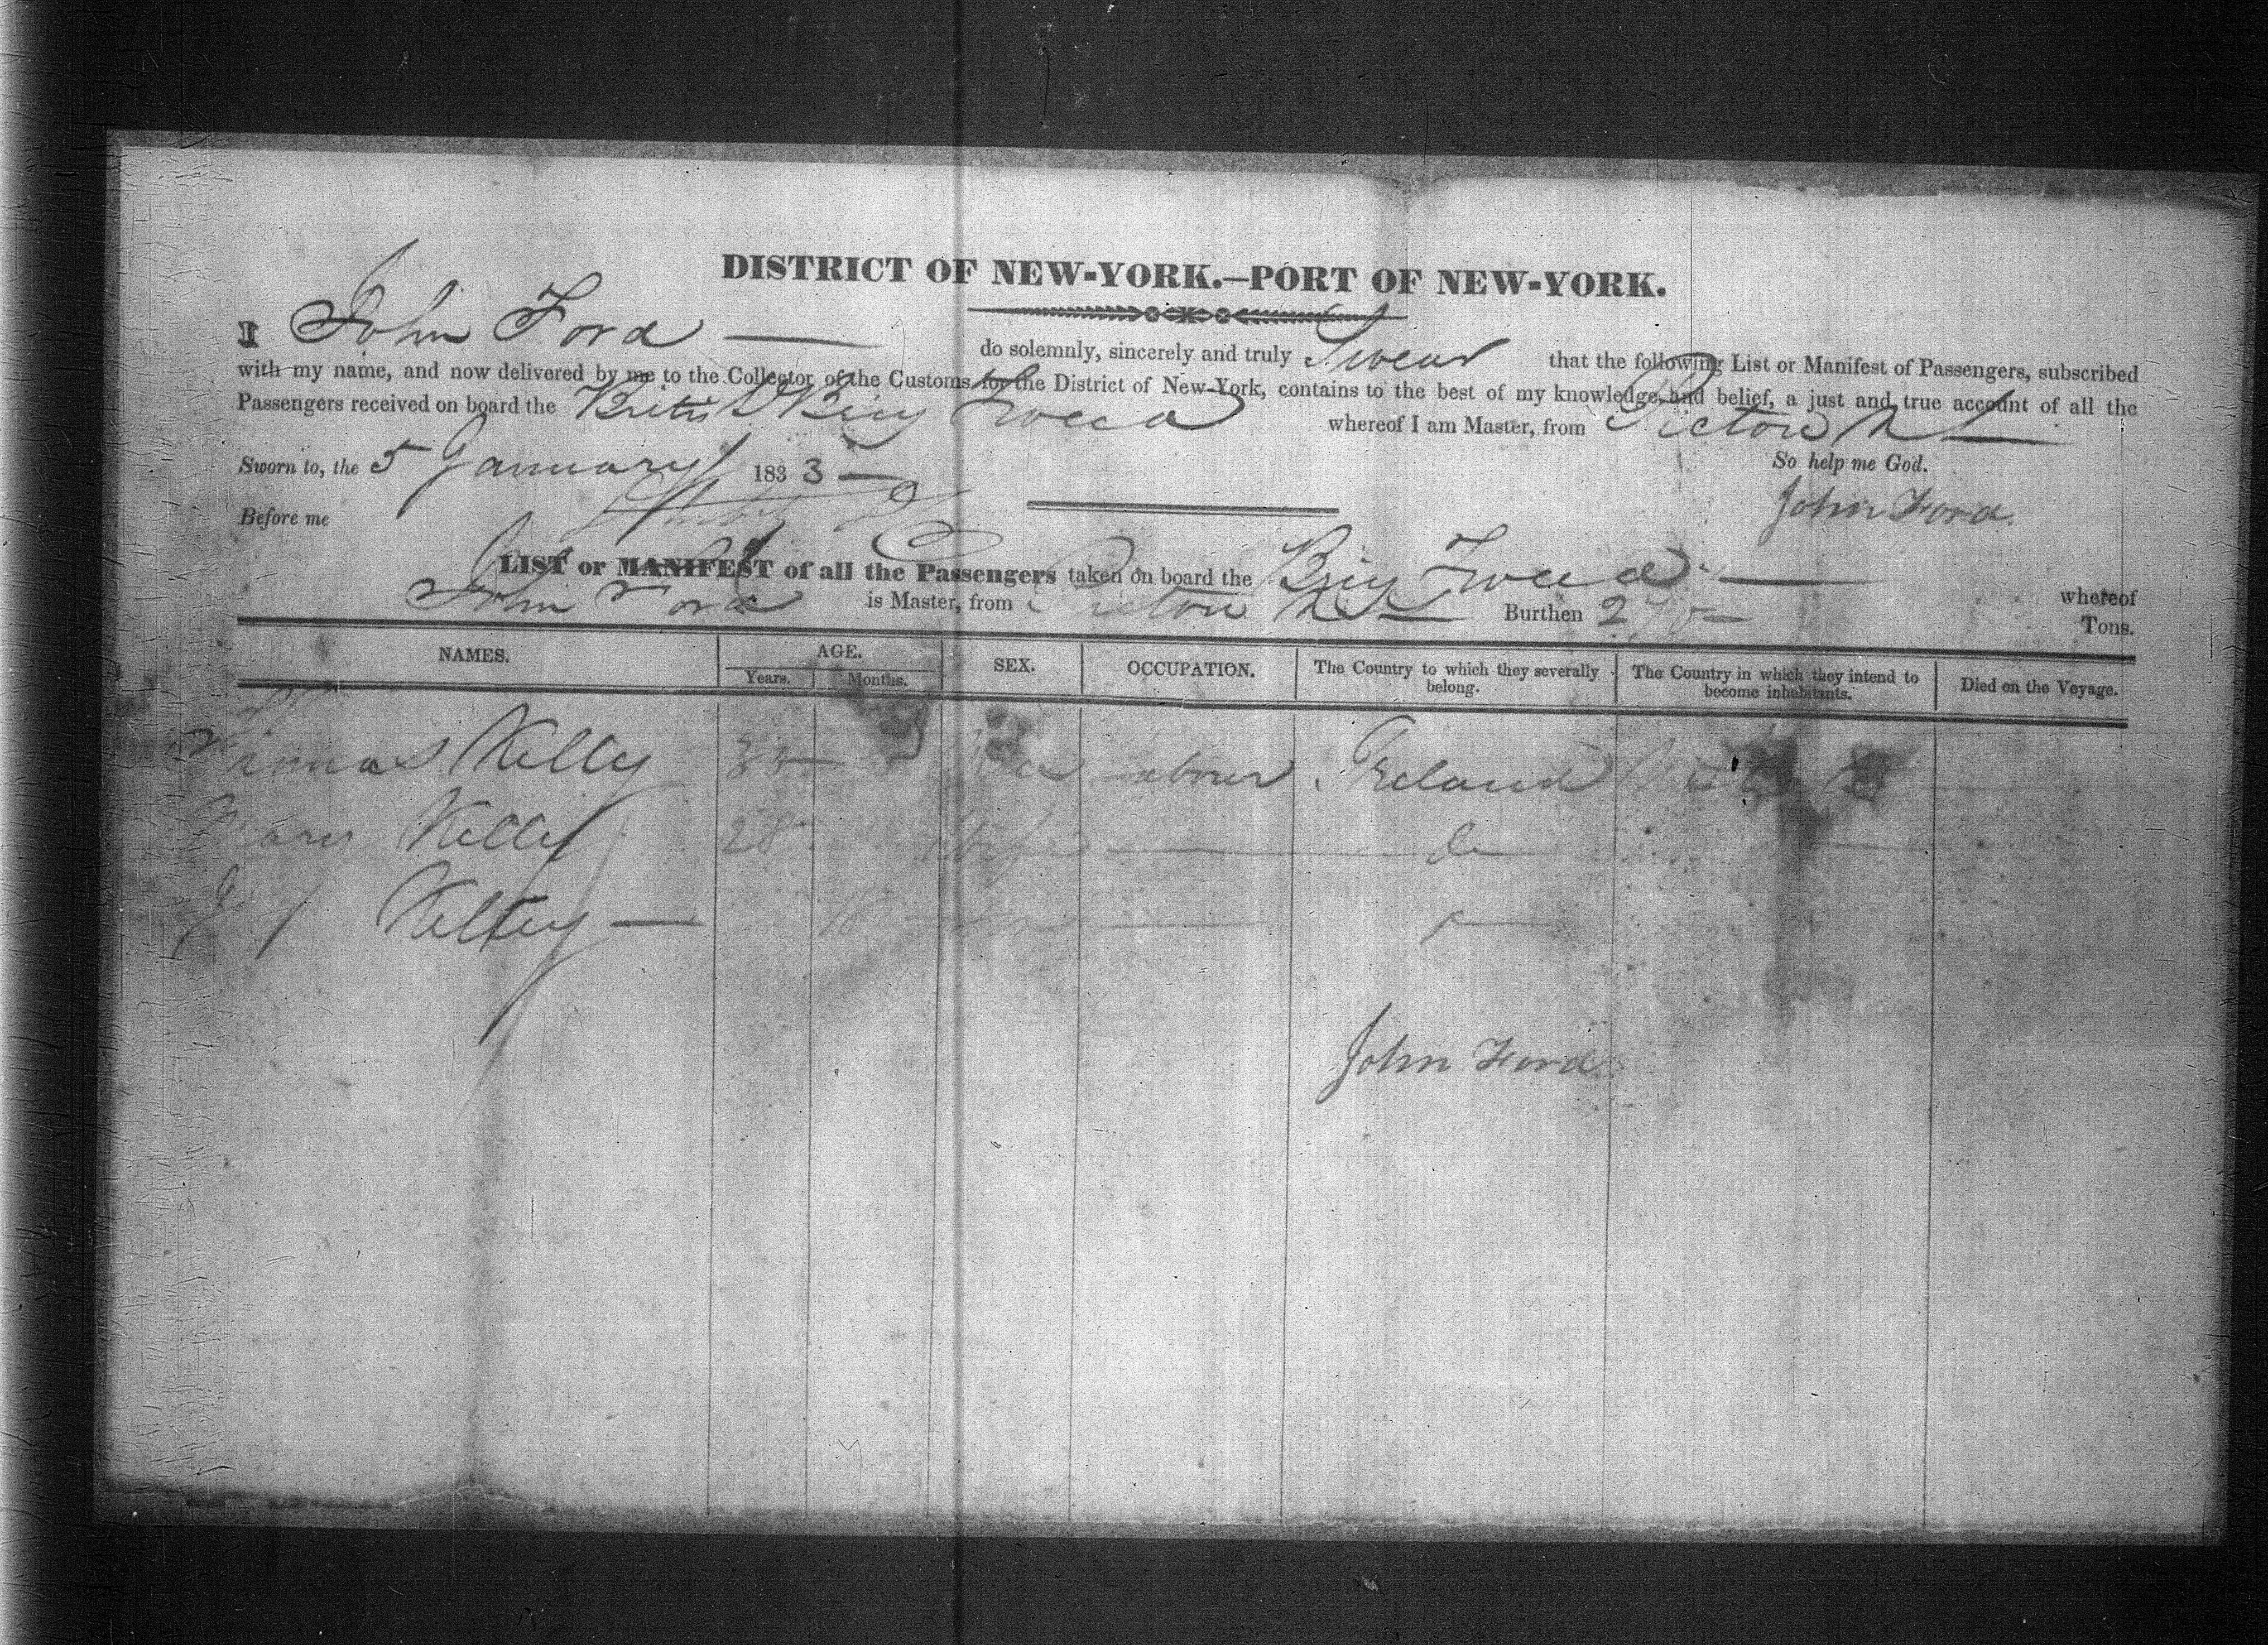 DISTRICT OF NEW-YORK.—PORT OF NEW-YORK.
I John Ford — do solemnly, sincerely and truly Swear that the following List or Manifest of Passengers, subscribed
with my name, and now delivered by me to the Collector of the Customs for the District of New-York, contains to the best of my knowledge and belief, a just and true account of all the
Passengers received on board the British Brig Tweed whereof I am Master, from Pictou N S
Sworn to, the 5 January 1833 — So help me God.
Before me John Ford.
LIST or MANIFEST of all the Passengers taken on board the Brig Tweed — whereof
John Ford is Master, from Pictou N S Burthen Tons.
NAMES. AGE. SEX. OCCUPATION. The Country to which they severally belong. The Country in which they intend to become inhabitants. Died on the Voyage.
Years. Months.
Kelly Ireland
Mary Kelly 28 — do
Kelley — 18
John Ford